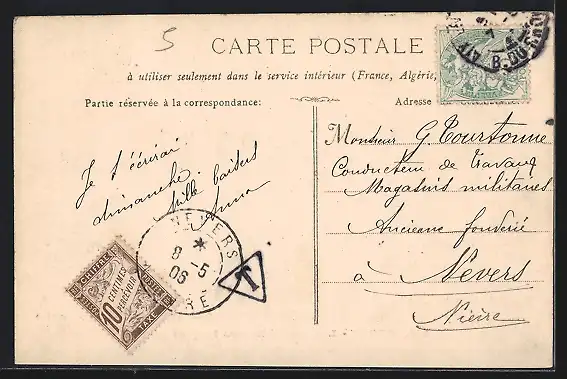 5
CARTE POSTALE
à utiliser seulement dans le service intérieur (France, Algérie,
Partie réservée à la correspondance:
Adresse
Je t'écrirai
dimanche.
Mille baisers
Anna
Monsieur G. Tourtonne
Conducteur de travaux
Magasins militaires
Ancienne fonderie
à Nevers
Nièvre
NEVERS
8 - 5
06
T
CHIFFRE
POSTE
TAXE
10
CENTIMES
À PERCEVOIR